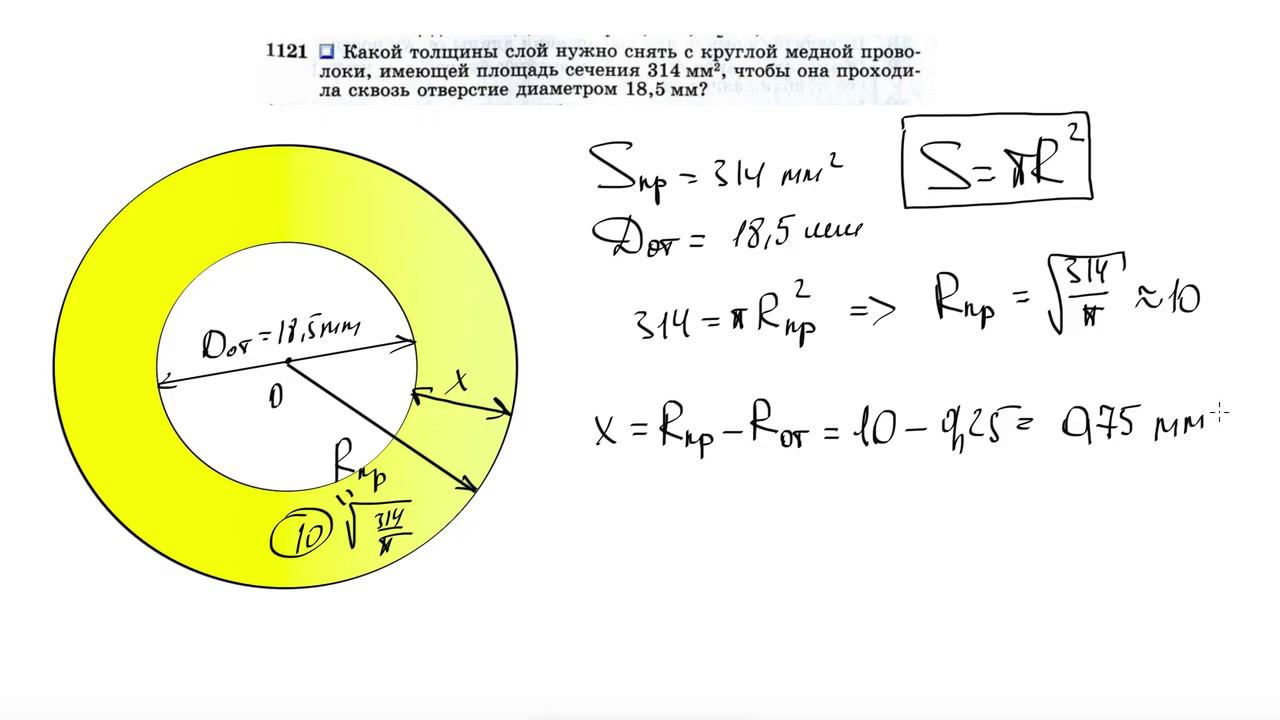 1121 Какой толщины слой нужно снять с круглой медной прово-
локи, имеющей площадь сечения 314 мм², чтобы она проходи-
ла сквозь отверстие диаметром 18,5 мм?
Sпр = 314 мм²
S = πR²
Dот = 18,5 мм
314 = πRпр² => Rпр = √(314/π) ≈ 10
x = Rпр − Rот = 10 − 9,25 = 0,75 мм
Dот = 18,5 мм
O
x
Rпр
10 = √(314/π)